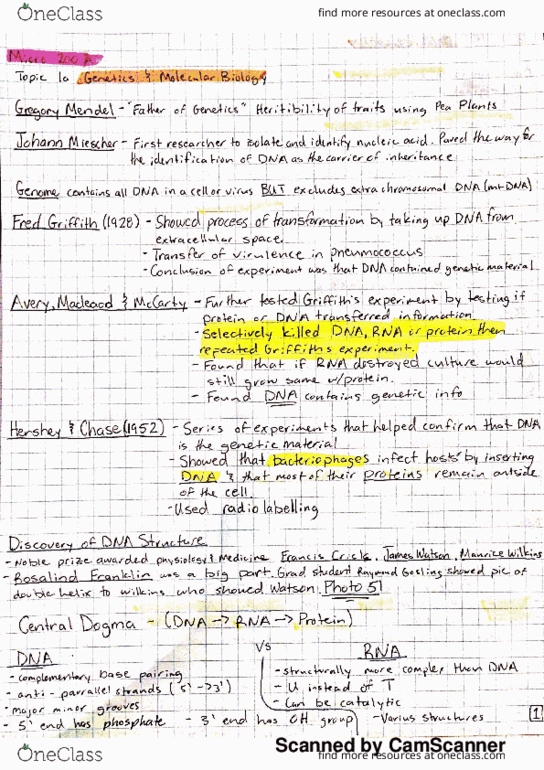 OneClass
find more resources at oneclass.com
Micro 200 A
Topic 1a Genetics & Molecular Biology
Gregory Mendel - "Father of Genetics" Heritibility of traits using Pea Plants
Johann Miescher - First researcher to isolate and identify nucleic acid. Paved the way for
the identification of DNA as the carrier of inheritance
Genome contains all DNA in a cell or virus BUT excludes extra chromosomal DNA (mt-DNA)
Fred Griffith (1928) - Showed process of transformation by taking up DNA from
extracellular space.
- Transfer of virulence in pneumococcus
- Conclusion of experiment was that DNA contained genetic material
Avery, Macleod & McCarty - Further tested Griffith's experiment by testing if
protein or DNA transferred information
- Selectively killed DNA, RNA or protein then
repeated Griffiths experiment.
- Found that if RNA distroyed culture would
still grow same w/protein.
- Found DNA contains genetic info
Hershey & Chase (1952) - Series of experiments that helped confirm that DNA
is the genetic material
- Showed that bacteriophages infect hosts by inserting
DNA & that most of their proteins remain outside
of the cell.
- Used radio labelling
Discovery of DNA Structure
- Noble prize awarded physiology & Medicine Francis Crick, James Watson, Maurice Wilkins
- Rosalind Franklin was a big part. Grad student Raymond Gosling showed pic of
double helix to wilkins who showed Watson. Photo 51
Central Dogma - (DNA -> RNA -> Protein)
DNA
vs
RNA
- complementary base pairing
- anti-parrallel strands (5' -> 3')
- major minor grooves
- 5' end has phosphate - 3' end has OH group
- structurally more complex than DNA
- U instead of T
- Can be catalytic
- Varius structures
1
Scanned by CamScanner
OneClass
find more resources at oneclass.com